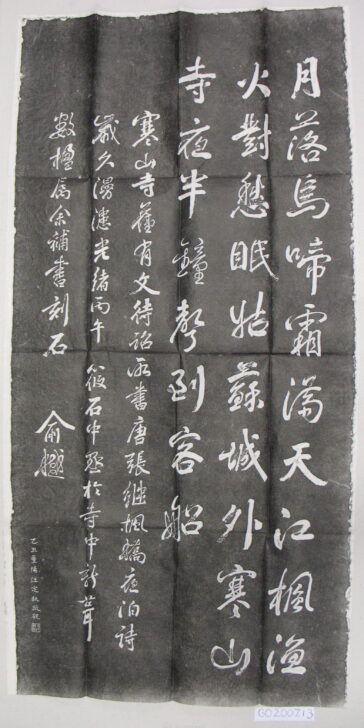 月落烏啼霜滿天江楓漁
火對愁眠姑蘇城外寒山
寺夜半鐘聲到客船
寒山寺舊有文待詔所書唐張繼楓橋夜泊詩
歲久漫漶光緒丙午筱石中丞於寺中新葺
數楹屬余補書刻石
俞樾
GO200Z13